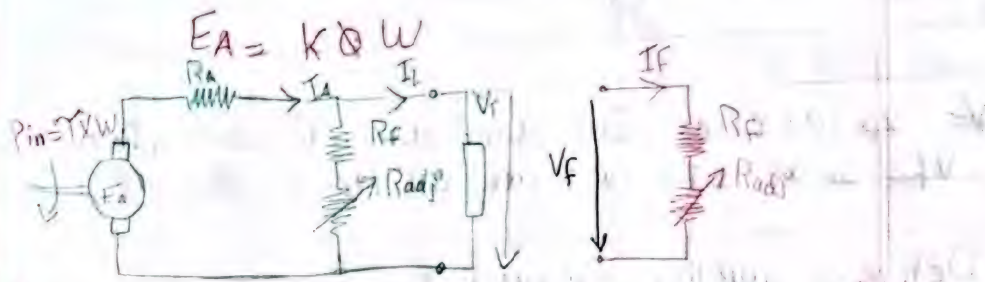 EA = K Φ W
Ra
IA
IL
IF
Pin = TXW
Ea
Rf
Radj
Vf
Radj